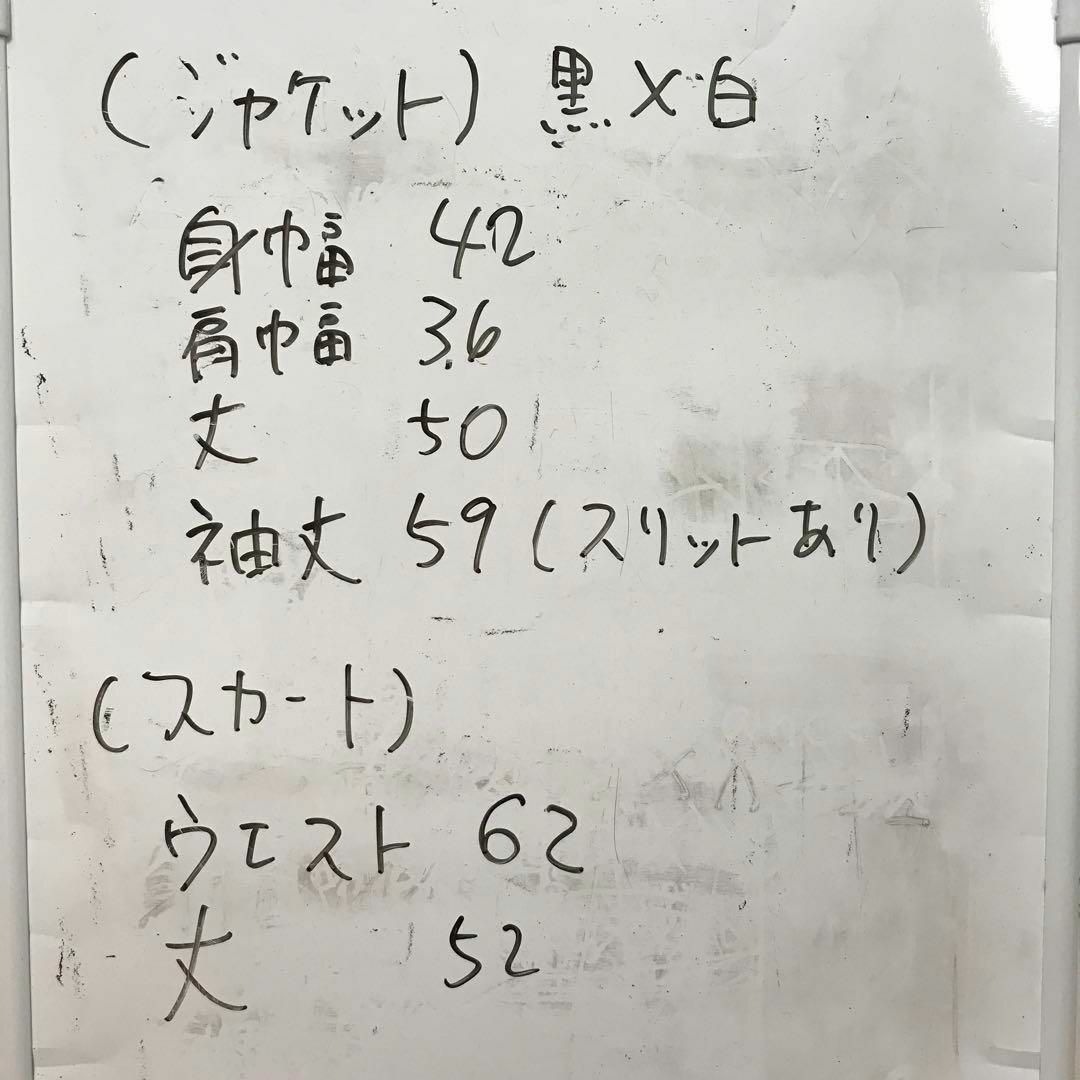 (ジャケット) 黒×白
身幅 42
肩幅 36
丈 50
袖丈 59 (スリットあり)
(スカート)
ウエスト 62
丈 52